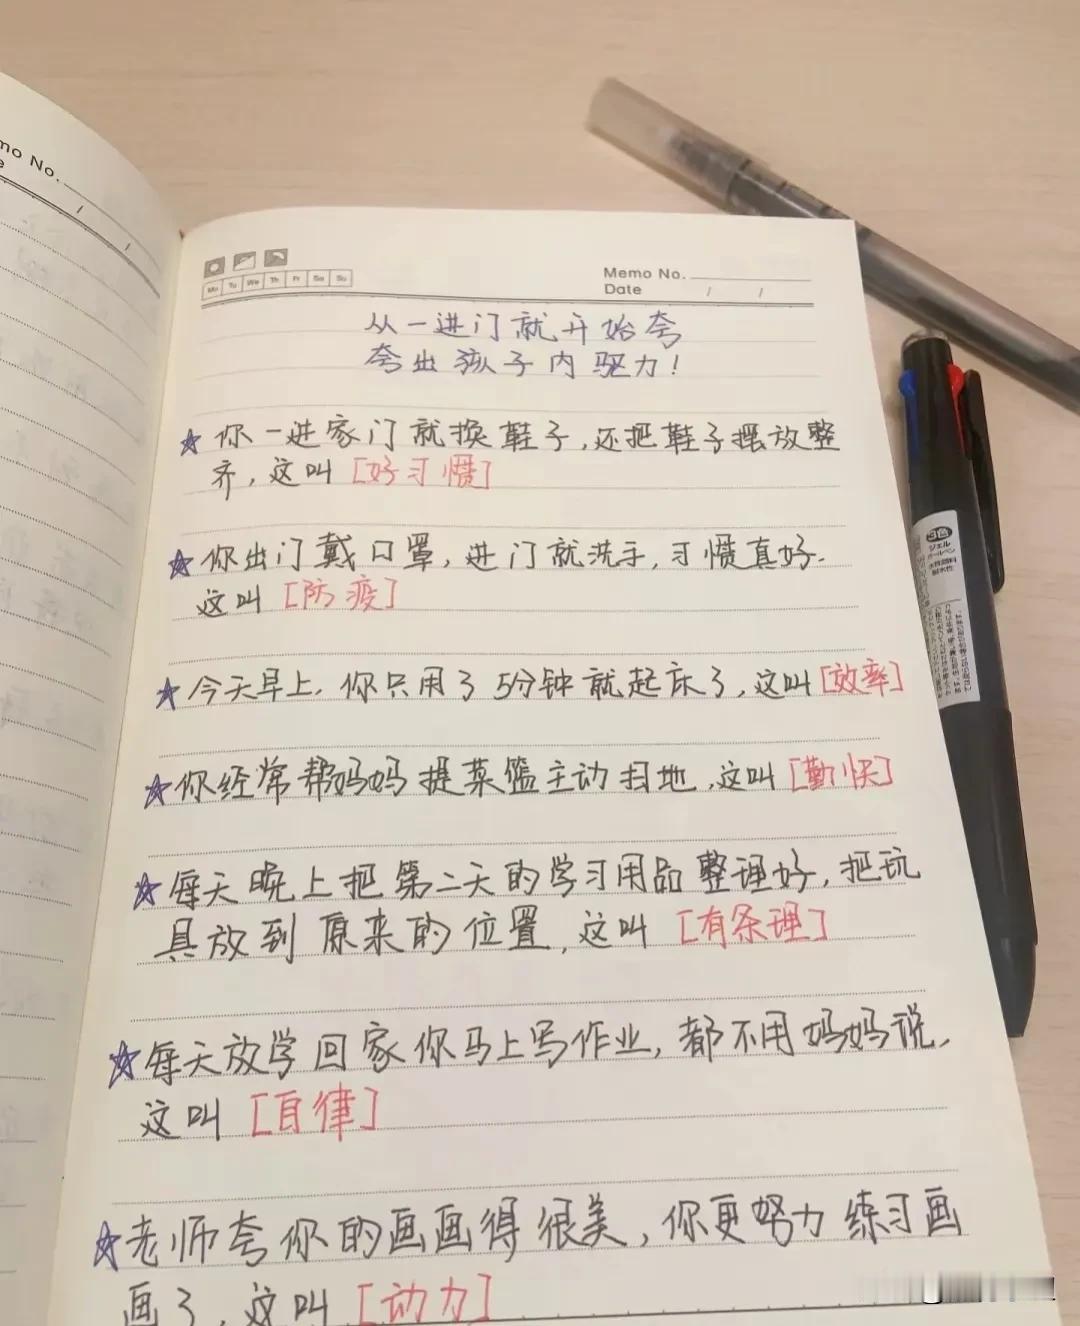 mo No.
Mo Tu We Th Fr Sa Su
Memo No.
Date / /
从一进门就开始夸
夸出孩子内驱力!
☆你一进家门就换鞋子,还把鞋子摆放整
齐,这叫[好习惯]
☆你出门戴口罩,进门就洗手,习惯真好.
这叫[防疫]
☆今天早上,你只用了5分钟就起床了,这叫[效率]
☆你经常帮妈妈提菜篮主动扫地,这叫[勤快]
☆每天晚上把第二天的学习用品整理好,把玩
具放到原来的位置,这叫[有条理]
☆每天放学回家你马上写作业,都不用妈妈说,
这叫[自律]
☆老师夸你的画画得很美,你更努力练习画
画了,这叫[动力]
3色
ジェル
ボールペン